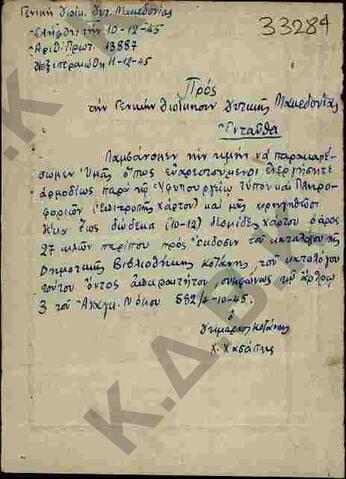 Γενική Διοίκ. Δυτ. Μακεδονίας
Ελήφθη την 10-12-45
Αριθ. Πρωτ. 13887
Διεξεπεραιώθη 11-12-45
33284
Πρός
την Γενικήν Διοίκησιν Δυτικής Μακεδονίας
Ενταύθα
Λαμβάνομεν την τιμήν να παρακαλέ-
σωμεν Υμάς όπως ευαρεστούμενοι ενεργήσητε
αρμοδίως παρά τω Υφυπουργείω Τύπου και Πληρο-
φοριών (Επιτροπής Χάρτου) και μας χορηγηθώσι
δέκα έως δώδεκα (10-12) δεσμίδες χάρτου βάρους
27 κιλών περίπου πρός έκδοσιν του καταλόγου της
Δημοτικής Βιβλιοθήκης Κοζάνης, του καταλόγου
τούτου όντος απαραιτήτου συμφώνως τω άρθρω
3 του Αναγκ. Νόμου 582/ -10-45.
ο
Δήμαρχος Κοζάνης
Χ. Χασάπης
Κ.Δ.Β.Κ.